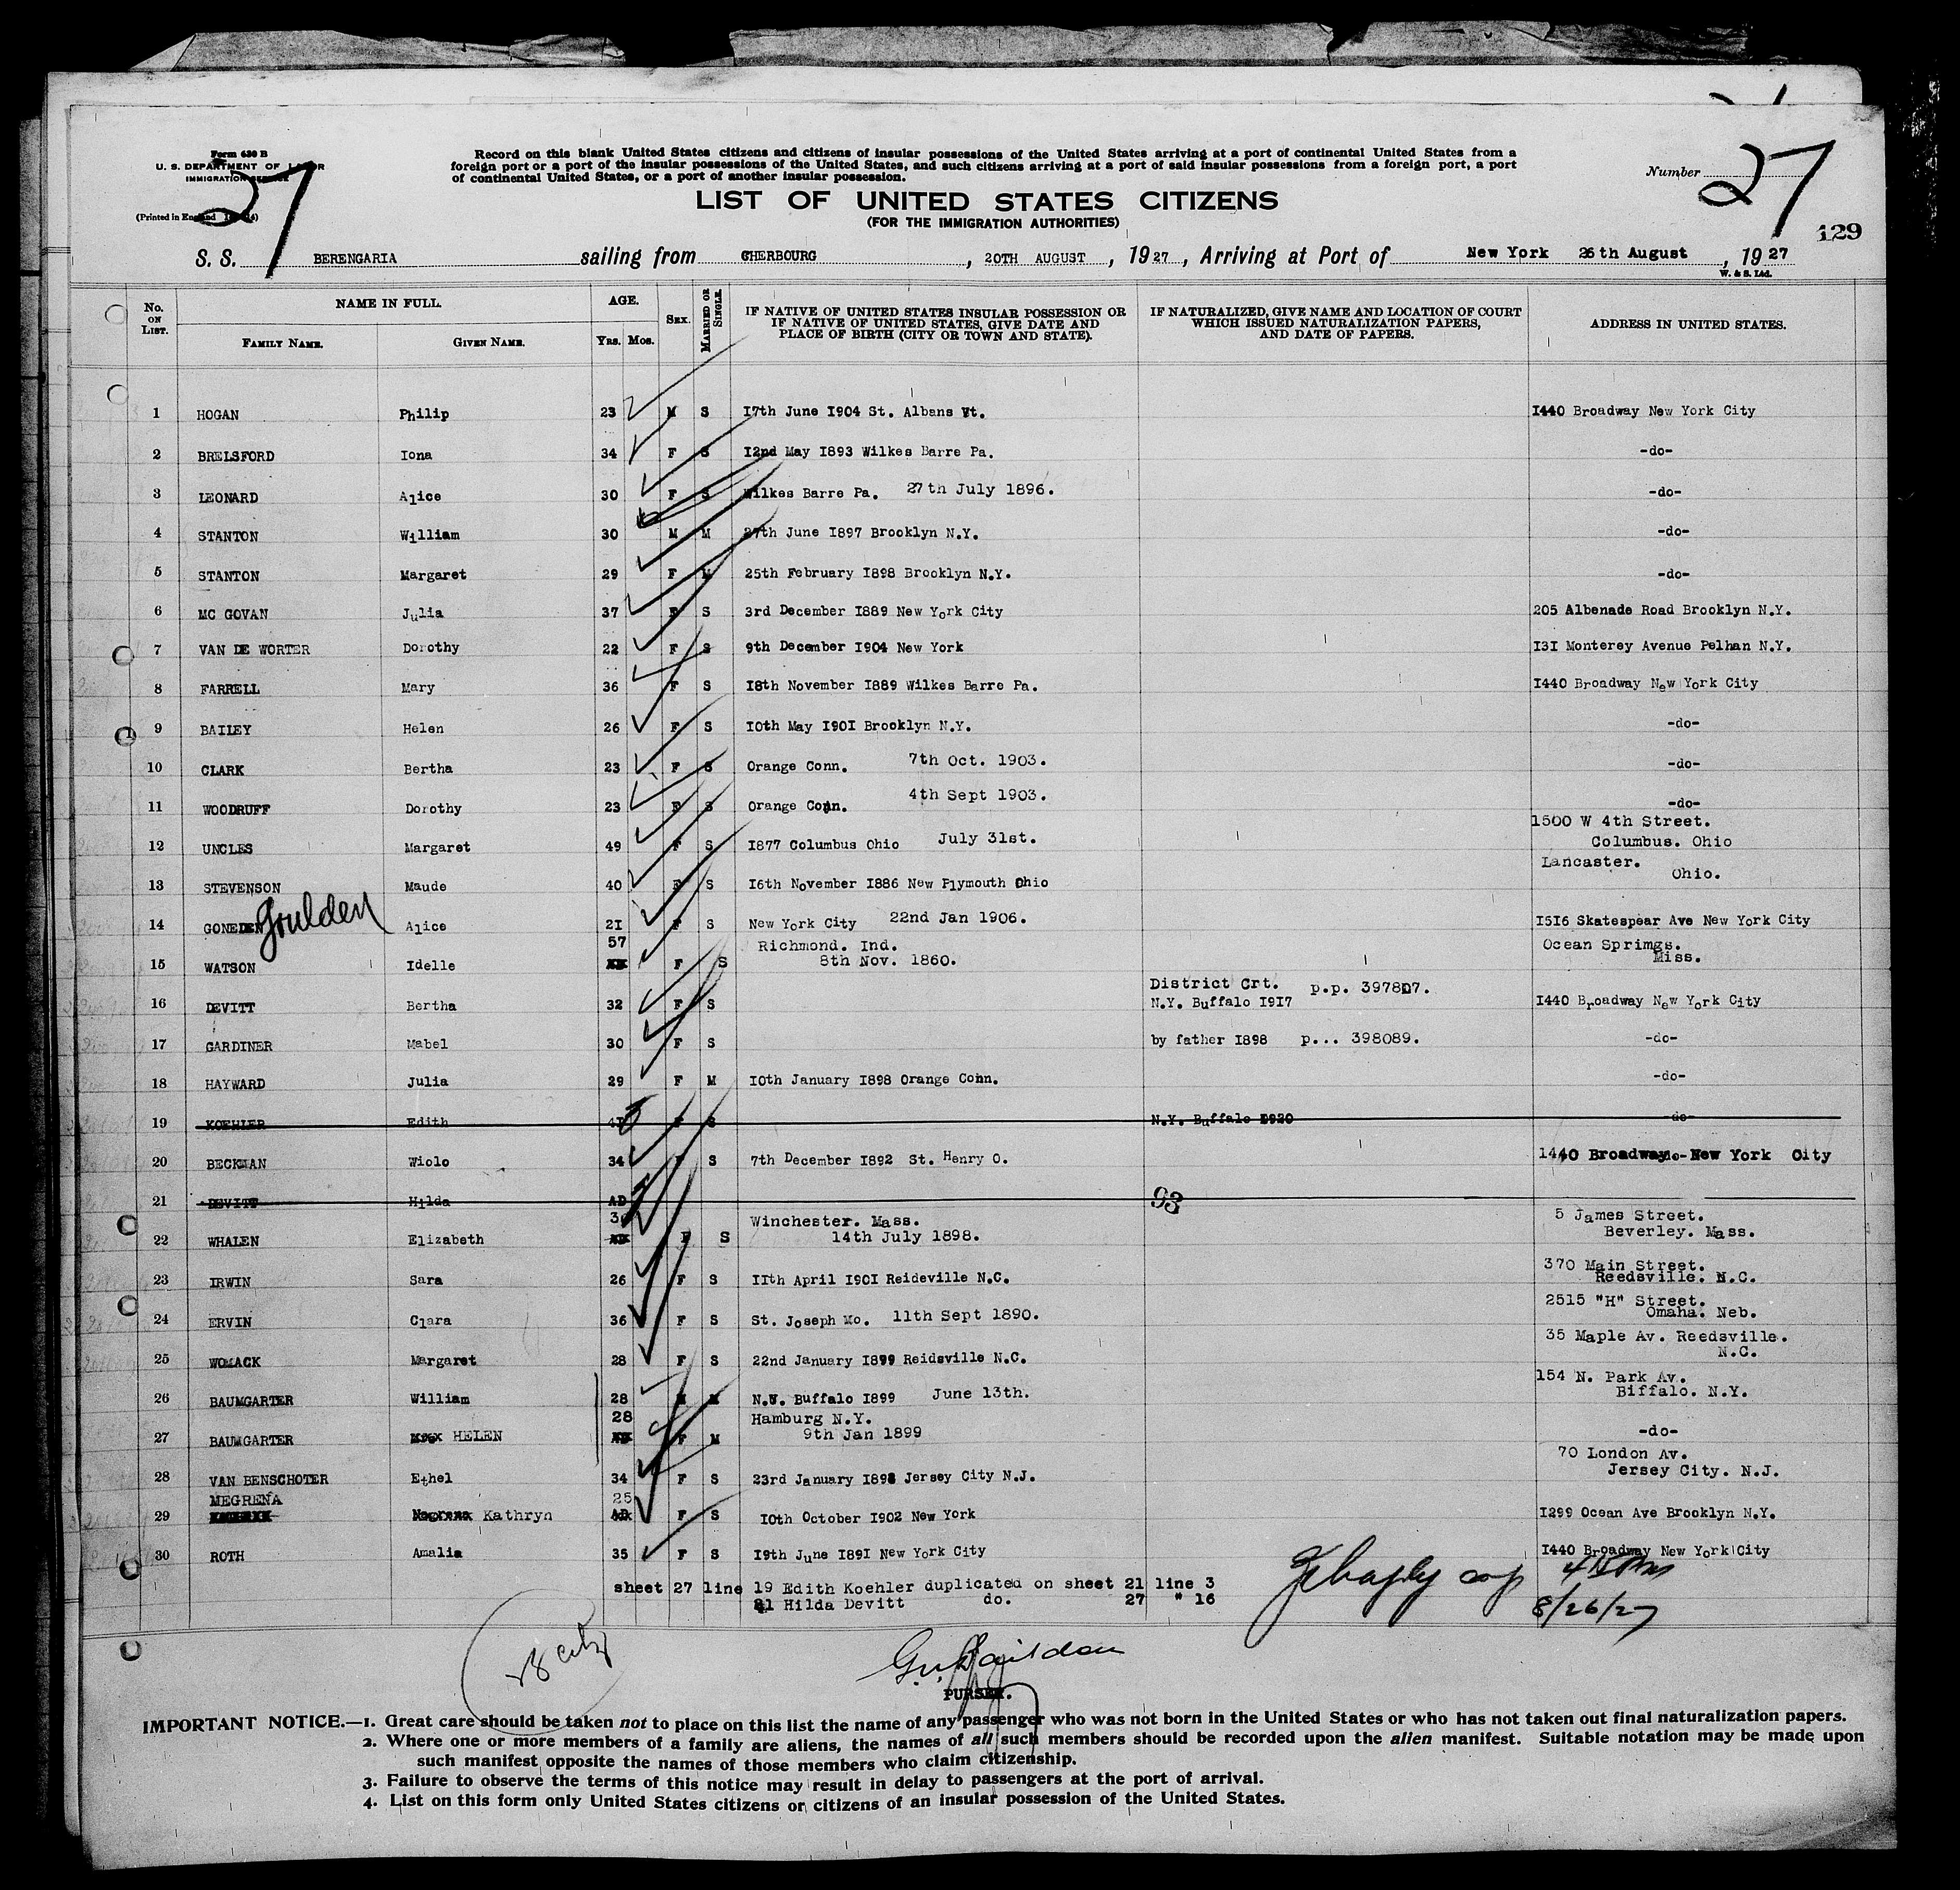 Form 630 B
U. S. DEPARTMENT OF LABOR
IMMIGRATION SERVICE
(Printed in England
27
Record on this blank United States citizens and citizens of insular possessions of the United States arriving at a port of continental United States from a
foreign port or a port of the insular possessions of the United States, and such citizens arriving at a port of said insular possessions from a foreign port, a port
of continental United States, or a port of another insular possession.
LIST OF UNITED STATES CITIZENS
(FOR THE IMMIGRATION AUTHORITIES)
Number 27
129
S. S. BERENGARIA sailing from CHERBOURG, 20TH AUGUST, 1927, Arriving at Port of New York 26th August, 1927
W. & S. Ltd.
No. ON LIST. NAME IN FULL. AGE. SEX. MARRIED OR SINGLE. IF NATIVE OF UNITED STATES INSULAR POSSESSION OR IF NATIVE OF UNITED STATES, GIVE DATE AND PLACE OF BIRTH (CITY OR TOWN AND STATE). IF NATURALIZED, GIVE NAME AND LOCATION OF COURT WHICH ISSUED NATURALIZATION PAPERS, AND DATE OF PAPERS. ADDRESS IN UNITED STATES.
FAMILY NAME. GIVEN NAME. Yrs. Mos.
1 HOGAN Philip 23 M S 17th June 1904 St. Albans Vt. 1440 Broadway New York City
2 BRELSFORD Iona 34 F S 12nd May 1893 Wilkes Barre Pa. -do-
3 LEONARD Alice 30 F S Wilkes Barre Pa. 27th July 1896. -do-
4 STANTON William 30 M M 27th June 1897 Brooklyn N.Y. -do-
5 STANTON Margaret 29 F M 25th February 1898 Brooklyn N.Y. -do-
6 MC GOVAN Julia 37 F S 3rd December 1889 New York City 205 Albenade Road Brooklyn N.Y.
7 VAN DE WORTER Dorothy 22 F S 9th December 1904 New York 131 Monterey Avenue Pelhan N.Y.
8 FARRELL Mary 36 F S 18th November 1889 Wilkes Barre Pa. 1440 Broadway New York City
9 BAILEY Helen 26 F S 10th May 1901 Brooklyn N.Y. -do-
10 CLARK Bertha 23 F S Orange Conn. 7th Oct. 1903. -do-
11 WOODRUFF Dorothy 23 F S Orange Conn. 4th Sept 1903. -do-
12 UNCLES Margaret 49 F S 1877 Columbus Ohio July 31st. 1500 W 4th Street. Columbus. Ohio
13 STEVENSON Maude 40 F S 16th November 1886 New Plymouth Ohio Lancaster. Ohio.
14 GONEDEN Goulden Alice 21 F S New York City 22nd Jan 1906. 1516 Skatespear Ave New York City
15 WATSON Idelle 57 F S Richmond. Ind. 8th Nov. 1860. Ocean Springs. Miss.
16 DEVITT Bertha 32 F S District Crt. N.Y. Buffalo 1917 p.p. 397807. 1440 Broadway New York City
17 GARDINER Mabel 30 F S by father 1898 p... 398089. -do-
18 HAYWARD Julia 29 F M 10th January 1898 Orange Conn. -do-
19 KOEHLER Edith 41 F S N.Y. Buffalo 1920 -do-
20 BECKMAN Wiolo 34 F S 7th December 1892 St. Henry O. 1440 Broadway New York City
21 DEVITT Hilda AD 93
22 WHALEN Elizabeth F S Winchester. Mass. 14th July 1898. 5 James Street. Beverley. Mass.
23 IRWIN Sara 26 F S 11th April 1901 Reideville N.C. 370 Main Street. Reedsville. N.C.
24 ERVIN Clara 36 F S St. Joseph Mo. 11th Sept 1890. 2515 "H" Street. Omaha. Neb.
25 WOMACK Margaret 28 F S 22nd January 1899 Reidsville N.C. 35 Maple Av. Reedsville. N.C.
26 BAUMGARTER William 28 M M N.Y. Buffalo 1899 June 13th. 154 N. Park Av. Biffalo. N.Y.
27 BAUMGARTER HELEN 28 F M Hamburg N.Y. 9th Jan 1899 -do-
28 VAN BENSCHOTER Ethel 34 F S 23rd January 1893 Jersey City N.J. 70 London Av. Jersey City. N.J.
29 MEGRENA Kathryn 25 F S 10th October 1902 New York 1299 Ocean Ave Brooklyn N.Y.
30 ROTH Amalia 35 F S 19th June 1891 New York City 1440 Broadway New York City
sheet 27 line 19 Edith Koehler duplicated on sheet 21 line 3
21 Hilda Devitt do. 27 " 16
8/26/27
PURSER.
IMPORTANT NOTICE.—1. Great care should be taken not to place on this list the name of any passenger who was not born in the United States or who has not taken out final naturalization papers.
2. Where one or more members of a family are aliens, the names of all such members should be recorded upon the alien manifest. Suitable notation may be made upon
such manifest opposite the names of those members who claim citizenship.
3. Failure to observe the terms of this notice may result in delay to passengers at the port of arrival.
4. List on this form only United States citizens or citizens of an insular possession of the United States.